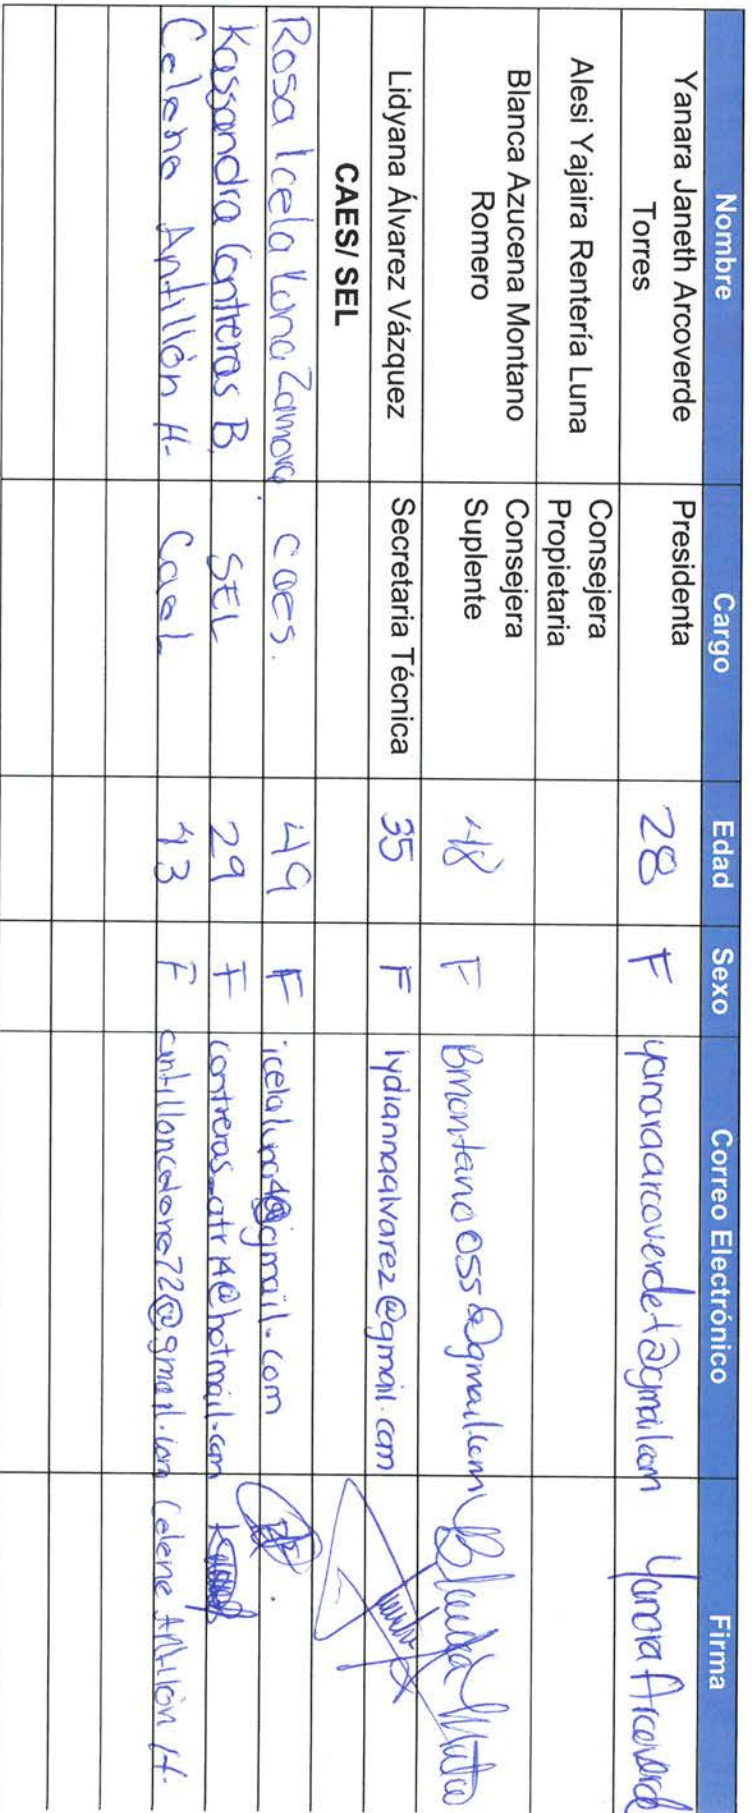 Nombre Cargo Edad Sexo Correo Electrónico Firma
Yanara Janeth Arcoverde Presidenta 28 F yanaraarcoverdet@gmail.com Yanara Arcoverde
Torres
Alesi Yajaira Rentería Luna Consejera
Propietaria
Blanca Azucena Montano Consejera 48 F Bmontano055@gmail.com
Romero Suplente
Lidyana Álvarez Vázquez Secretaria Técnica 35 F lydiannaalvarez@gmail.com
CAES/ SEL
Rosa Icela Luna Zamora caes. 49 F icelaluna40@gmail.com
Kassandra Contreras B. SEL 29 F contreras_atr14@hotmail.com
Celene Antillón H. Cael 43 F antilloncelene72@gmail.com Celene Antillón H.